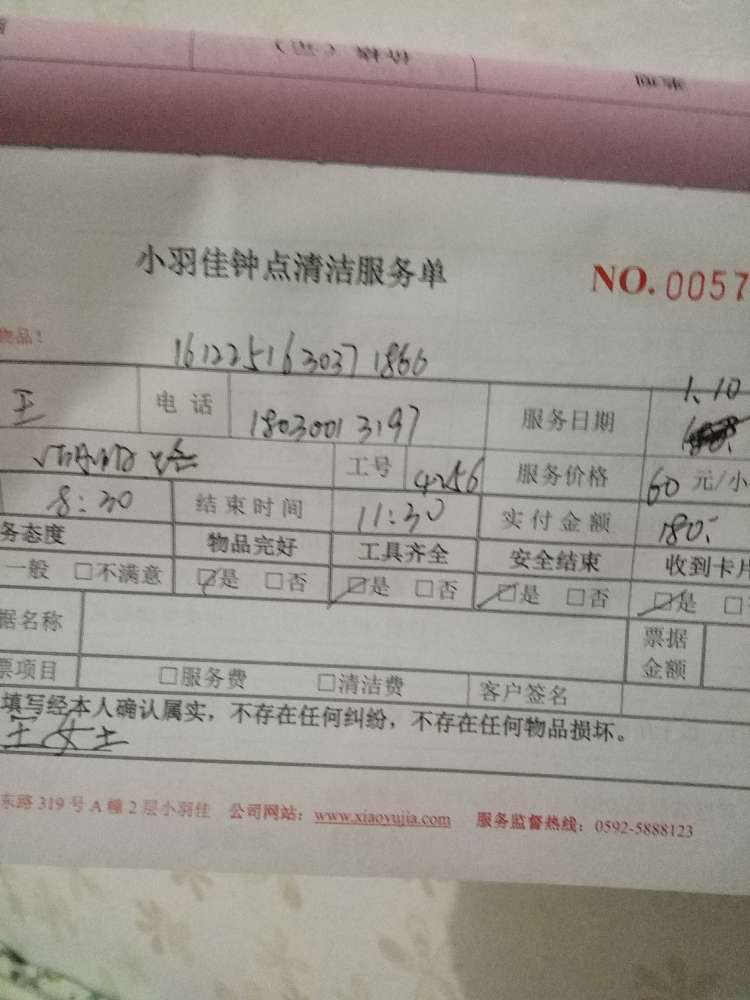 小羽佳钟点清洁服务单
NO. 0057
物品！
161225163037 1866
王 电话 18030013197 服务日期 1.10
工号 4256 服务价格 60 元/小
8:30 结束时间 11:30 实付金额 180.
务态度 物品完好 工具齐全 安全结束 收到卡片
一般 □不满意 ☑是 □否 ☑是 □否 ☑是 □否 ☑是 □
据名称 票据金额
票项目 □服务费 □清洁费 客户签名
填写经本人确认属实，不存在任何纠纷，不存在任何物品损坏。
王女士
东路319号A幢2层小羽佳 公司网站：www.xiaoyujia.com 服务监督热线：0592-5888123